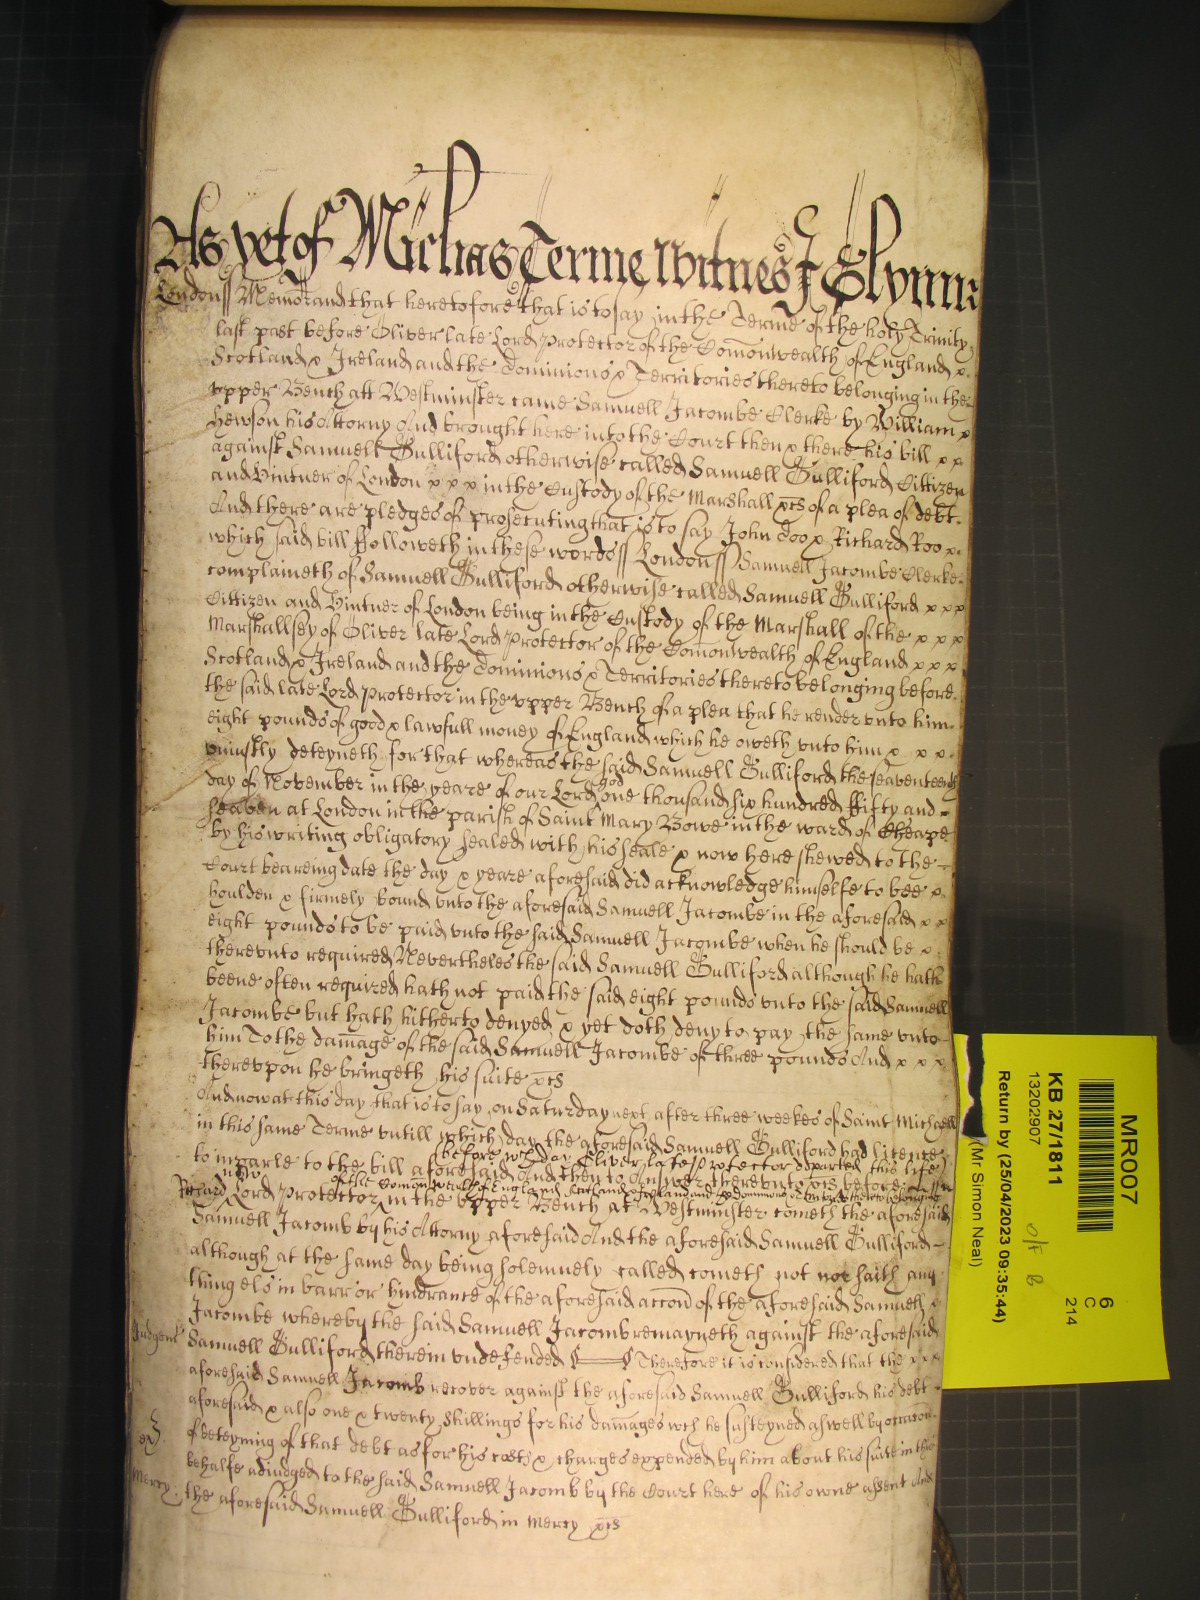 As yet of Michas Terme Witnes J Glynn
London ss Memorand that heretofore that is to say in the Terme of the holy Trinity
last past before Oliver late Lord Protector of the Comonwealth of England x
Scotland x Ireland and the Dominions x Territories thereto belonging in the
vpper Bench att Westminster came Samuell Jacombe Clerke by William x
Hewson his Attorny And brought here into the Court then x there his bill x x
against Samuell Gulliford otherwise called Samuell Gulliford Cittizen
and Vintner of London x x x in the Custody of the Marshall xcs of a plea of debt
And there are pledges of prosecuting that is to say John Doo x Richard Roo x
which said bill ffolloweth in these words ss London ss Samuell Jacombe Clerke
complaineth of Samuell Gulliford otherwise called Samuell Gulliford x x x
Cittizen and Vintner of London being in the Custody of the Marshall of the x x x
Marshallsey of Oliver late Lord Protector of the Comonwealth of England x x x
Scotland x Ireland and the Dominions x Territories thereto belonging before
the said late Lord Protector in the vpper Bench of a plea that he render vnto him
eight pounds of good x lawfull money of England which he oweth vnto him x x x
vniustly deteyneth for that whereas the said Samuell Gulliford the seaventeenth
day of November in the yeare of our Lord god one thousand six hundred ffifty and
seaven at London in the parish of Saint Mary Bowe in the ward of Cheape
by his writing obligatory sealed with his seale x now here shewed to the
Court beareing date the day x yeare aforesaid did acknowledge himselfe to bee x
houlden x firmely bound vnto the aforesaid Samuell Jacombe in the aforesaid x x
eight pounds to be paid vnto the said Samuell Jacombe when he should be x
therevnto required Nevertheles the said Samuell Gulliford although he hath
beene often required hath not paid the said eight pounds vnto the said Samuell
Jacombe but hath hitherto denyed x yet doth deny to pay the same vnto
him To the damage of the said Samuell Jacombe of three pounds And x x x
therevpon he bringeth his suite xcs
And now at this day that is to say on Saturday next after three weekes of Saint Michaell
in this same Terme vntill which day the aforesaid Samuell Gulliford had licence
(before wch day Oliver late Lp rotector departed this life)
to imparle to the bill aforesaid And then to Answer therevnto xcs before
now of the Comonwealth of England Scotland x Ireland and the dominions x territories thereto belonging
Richard Lord Protector in the vpper Bench at Westminster cometh the aforesaid
Samuell Jacomb by his Attorny aforesaid And the aforesaid Samuell Gulliford
although at the same day being solemnely called cometh not nor saith any
thing els in barr or hindrance of the aforesaid accon of the aforesaid Samuell x
Jacombe whereby the said Samuell Jacomb remayneth against the aforesaid
Judgent Samuell Gulliford therein vndefended Therefore it is considered that the x x x
aforesaid Samuell Jacomb recover against the aforesaid Samuell Gulliford his debt
aforesaid x also one x twenty shillings for his damages wch he susteyned aswell by occacon
of deteyning of that debt as for his costs x charges expended by him about his suite in this
behalfe adiudged to the said Samuell Jacomb by the Court here of his owne assent And
Mercy the aforesaid Samuell Gulliford in Mercy xcs
MR007
KB 27/1811
13202907
o/f B
6
C
214
Return by (25/04/2023 09:35:44)
(Mr Simon Neal)